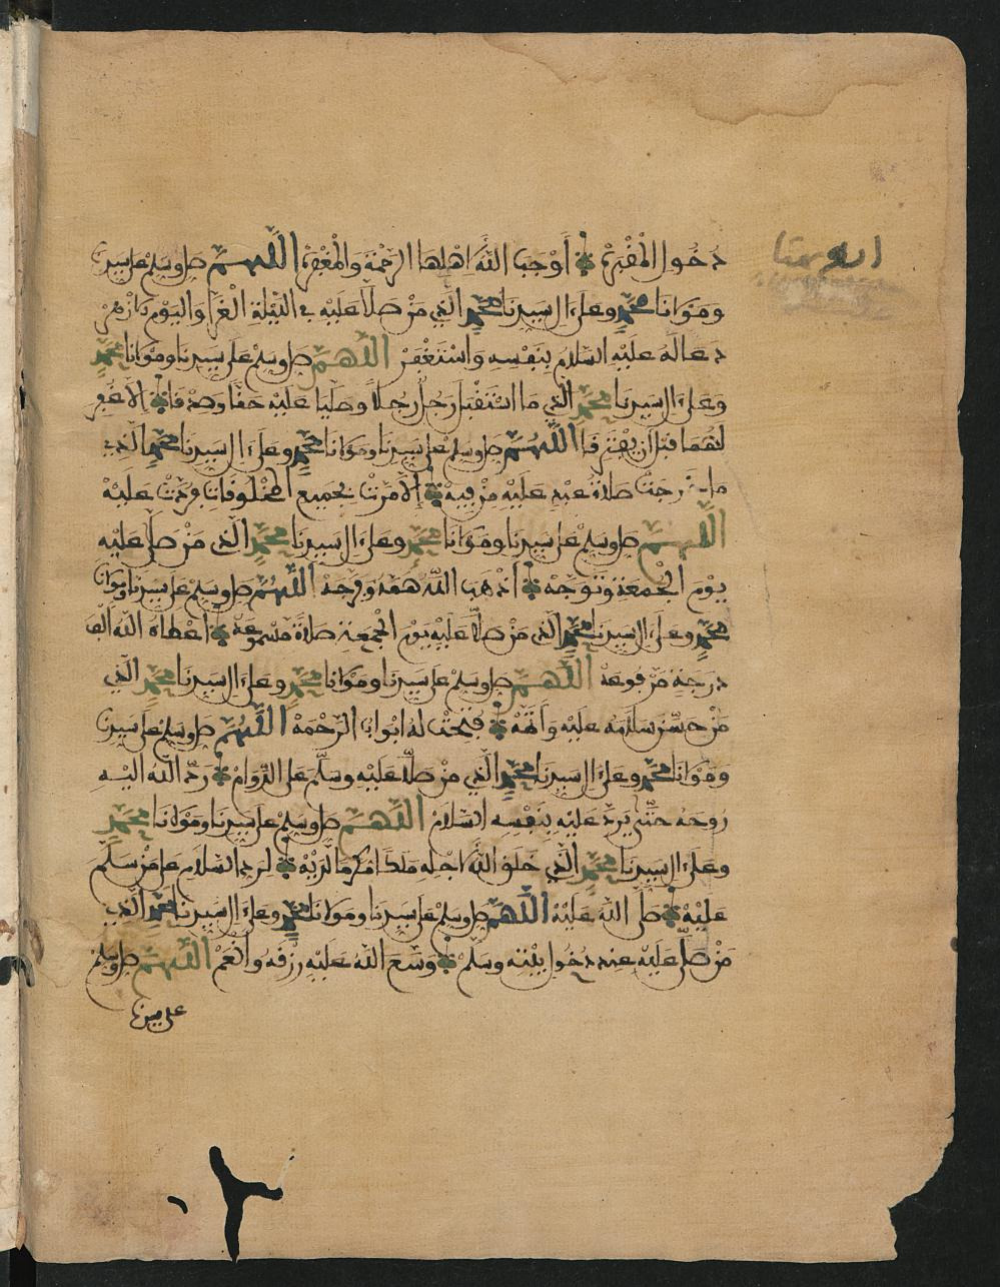 دخول المقبرة أوجب الله لاهلها الرحمة والمغفرة اللهم صل وسلم على سيدنا
ومولانا محمد وعلى ءال سيدنا محمد الذي من صلا عليه في الليلة الغرا واليوم الازهر
دعا له عليه السلام بنفسه واستغفر اللهم صل وسلم على سيدنا ومولانا محمد
وعلى ءال سيدنا محمد الذي ما استقبل رجل رجلا وصليا عليه حقا وصدقا الا غفر
لهما قبل أن يفترقا اللهم صل وسلم على سيدنا ومولانا محمد وعلى ءال سيدنا محمد الذي
ما خرجت صلاة عبد عليه من فيه الا مرت بجميع المخلوقات عليه
اللهم صل وسلم على سيدنا ومولانا محمد وعلى ءال سيدنا محمد الذي من صلى عليه
يوم الجمعة وتوجه أذهب الله همه وفرجه اللهم صل وسلم على سيدنا ومولانا
محمد وعلى ءال سيدنا محمد الذي من صلا عليه يوم الجمعة صلاة مسموعة أعطاه الله ألف
درجة مرفوعة اللهم صل وسلم على سيدنا ومولانا محمد وعلى ءال سيدنا محمد الذي
من حسن سلامه عليه فتحت له ابواب الرحمة اللهم صل وسلم على سيدنا
ومولانا محمد وعلى ءال سيدنا محمد الذي من صلا عليه وسلم على الدوام رد الله اليه
روحه حتى يرد عليه بنفسه السلام اللهم صل وسلم على سيدنا ومولانا محمد
وعلى ءال سيدنا محمد الذي خلق الله لاجله ملكا مكرما لديه لرد السلام على من سلم
عليه صلى الله عليه اللهم صل وسلم على سيدنا ومولانا محمد وعلى ءال سيدنا محمد الذي
من صلى عليه عند دخول بيته وسلم وسع الله عليه رزقه وأنعم اللهم صل وسلم
على سيدنا